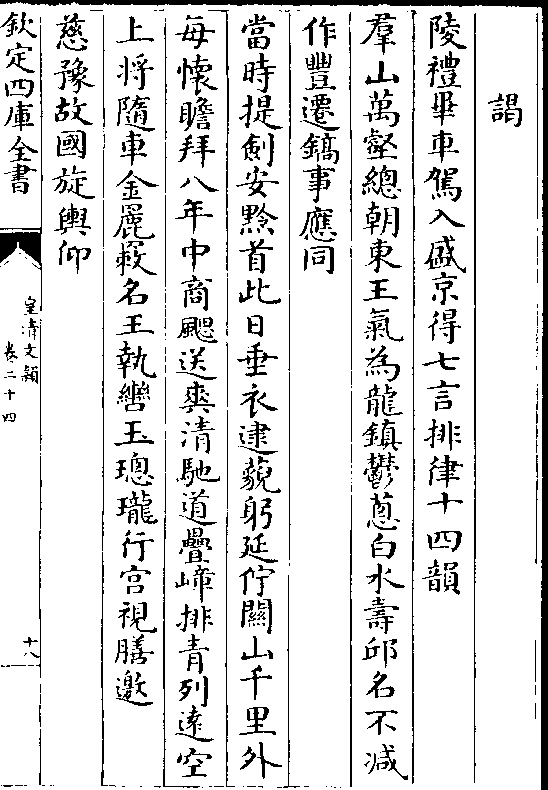 謁
陵禮畢車駕入盛京得七言排律十四韻
羣山萬壑總朝東王氣為龍鎮鬱蔥白水壽邱名不減
作豐遷鎬事應同
當時提劍安黔首此日垂衣逮藐躬延佇關山千里外
每懷瞻拜八年中商颸送爽清馳道疊嶂排青列遠空
上將隨車金䍡䍥名王執轡玉璁瓏行宫視膳邀
慈豫故國旋輿仰
欽定四庫全書
皇清文穎
卷二十四
十八